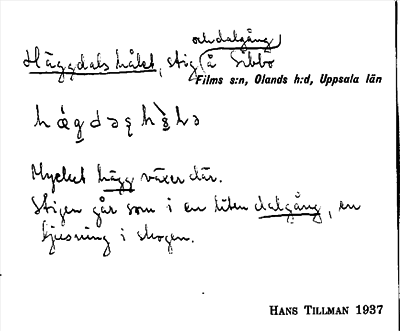 och dalgång
Häggdalshålet, stig å Sibbo
Films s:n, Olands h:d, Uppsala län
Mycket hägg växer där.
Stigen går som i en liten dalgång, en
ljusning i skogen.
HANS TILLMAN 1937